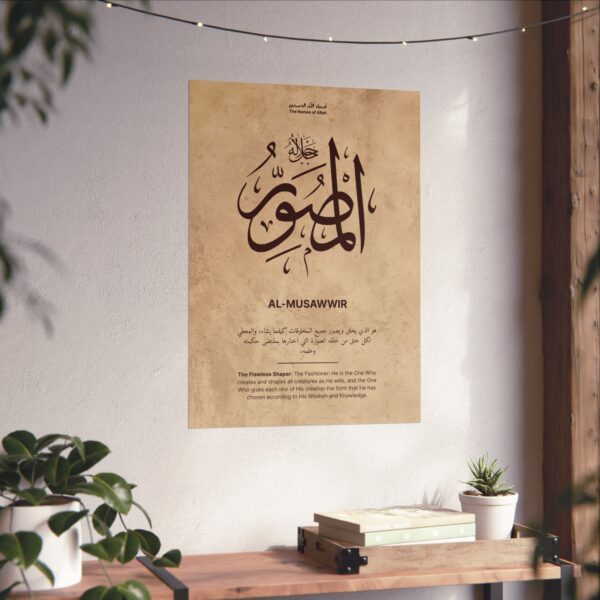 أسماء الله الحسنى
The Names of Allah
جل جلاله
المصور
AL-MUSAWWIR
هو الذي يخلق ويصور جميع المخلوقات كيفما يشاء، والمعطي
لكل خلق من خلقه الصورة التي اختارها بمقتضى حكمته
وعلمه.
The Flawless Shaper: The Fashioner: He is the One Who
creates and shapes all creatures as He wills, and the One
Who gives each one of His creation the form that He has
chosen according to His Wisdom and Knowledge.
HOME